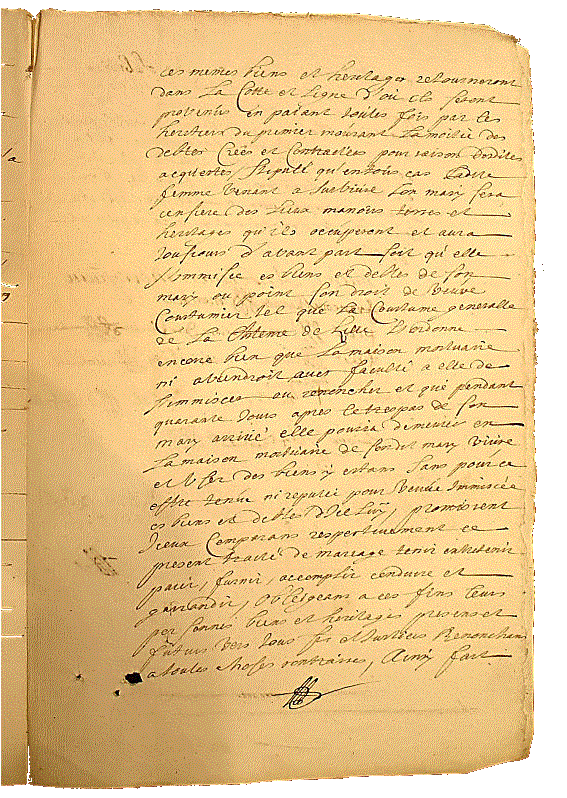 ces memes biens et heritages retourneront
dans la Cotte et ligne d'ou ils seront
provenus en paiant toutes fois par les
heritiers du premier mourant la moitié des
debtes Créés et Contractées pour raison desdites
acquestes, stipulé qu'en tous cas ladite
femme venant a survivre son mary sera
censiere des lieux manoirs terres et
heritages qu'ils occuperont et aura
tousiours d'avant part soit qu'elle
s'immisce es biens et debtes de son
mary ou point son droit de veuve
Coustumier tel que la Coustume generalle
de la Chlenie de Lille l'ordonne
encore bien que la maison mortuaire
ni aviendroit avec faculté a elle de
s'immiscer ou renoncher et que pendant
quarante jours apres le trespas de son
mary arrivé elle pourra demeurer en
la maison mortuaire de sondit mary vivre
et user des biens y estans sans pour ce
estre tenue ni reputée pour veuve immiscée
es biens et debtes d'icelluy, promisrent
iceux Comparans respectivement ce
present traité de mariage tenir entretenir
paier, furnir, accomplir conduire et
garrandir, obligeans a ces fins leurs
personnes biens et heritages presens et
futurs vers tous srs et justices Renonchans
a toutes choses contraires, Ainsy fait